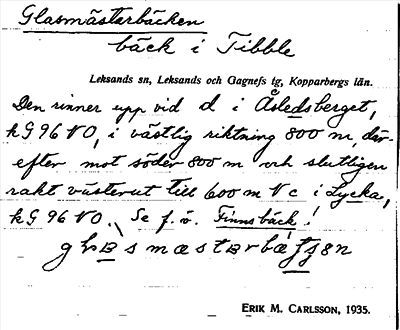 Glasmästarbäcken
bäck i Tibble
Leksands sn, Leksands och Gagnefs tg, Kopparbergs län.
Den rinner upp vid d i Åsledsberget,
kG 96 NO, i västlig riktning 800 m, där-
efter mot söder 800 m och slutligen
rakt västerut till 600 m V c i Lycka,
kG 96 NO. Se f. ö. Finnsbäck!
ERIK M. CARLSSON, 1935.